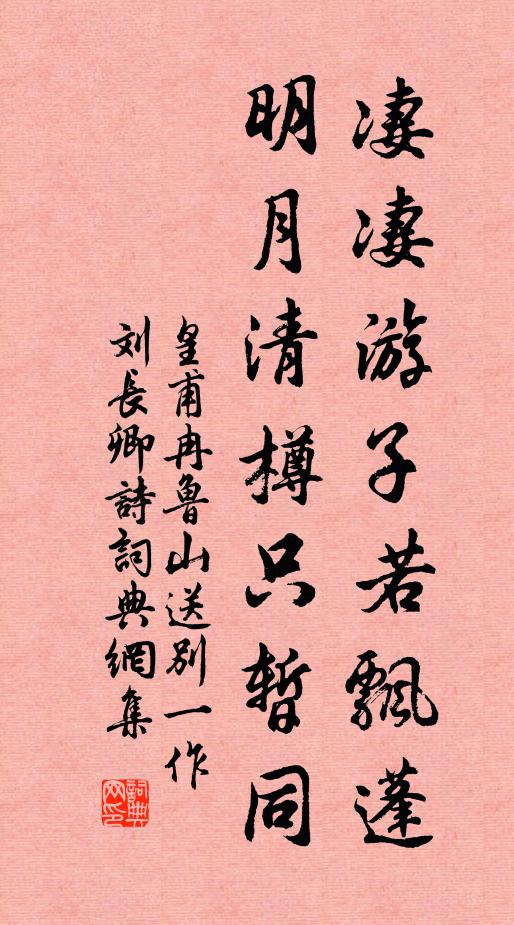 凄凄游子若飄蓬
明月清樽只暫同
皇甫冉魯山送别一作
刘長卿詩詞典網集
詞典網印